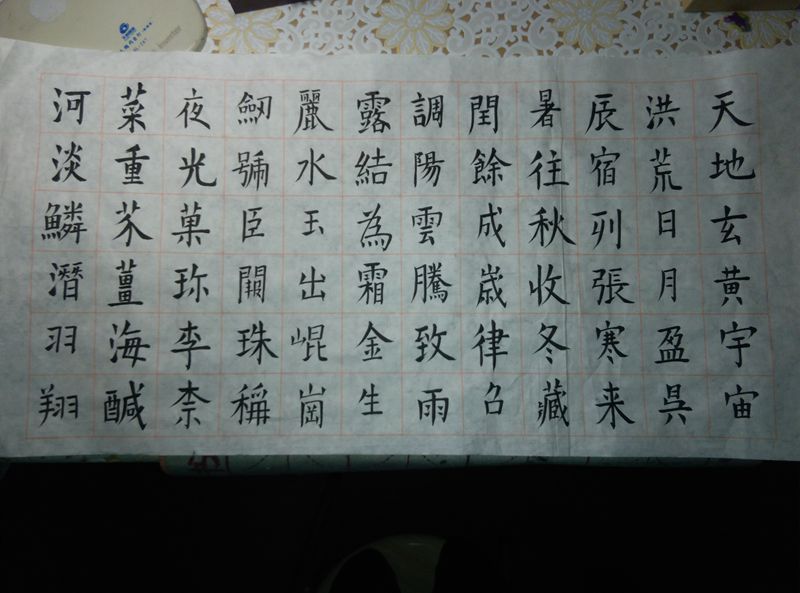 天地玄黃宇宙
洪荒日月盈昃
辰宿列張寒来
暑往秋收冬藏
閏餘成嵗律召
調陽雲騰致雨
露結為霜金生
麗水玉出崐崗
劒號臣闕珠稱
夜光菓珎李柰
菜重芥薑海醎
河淡鱗潛羽翔